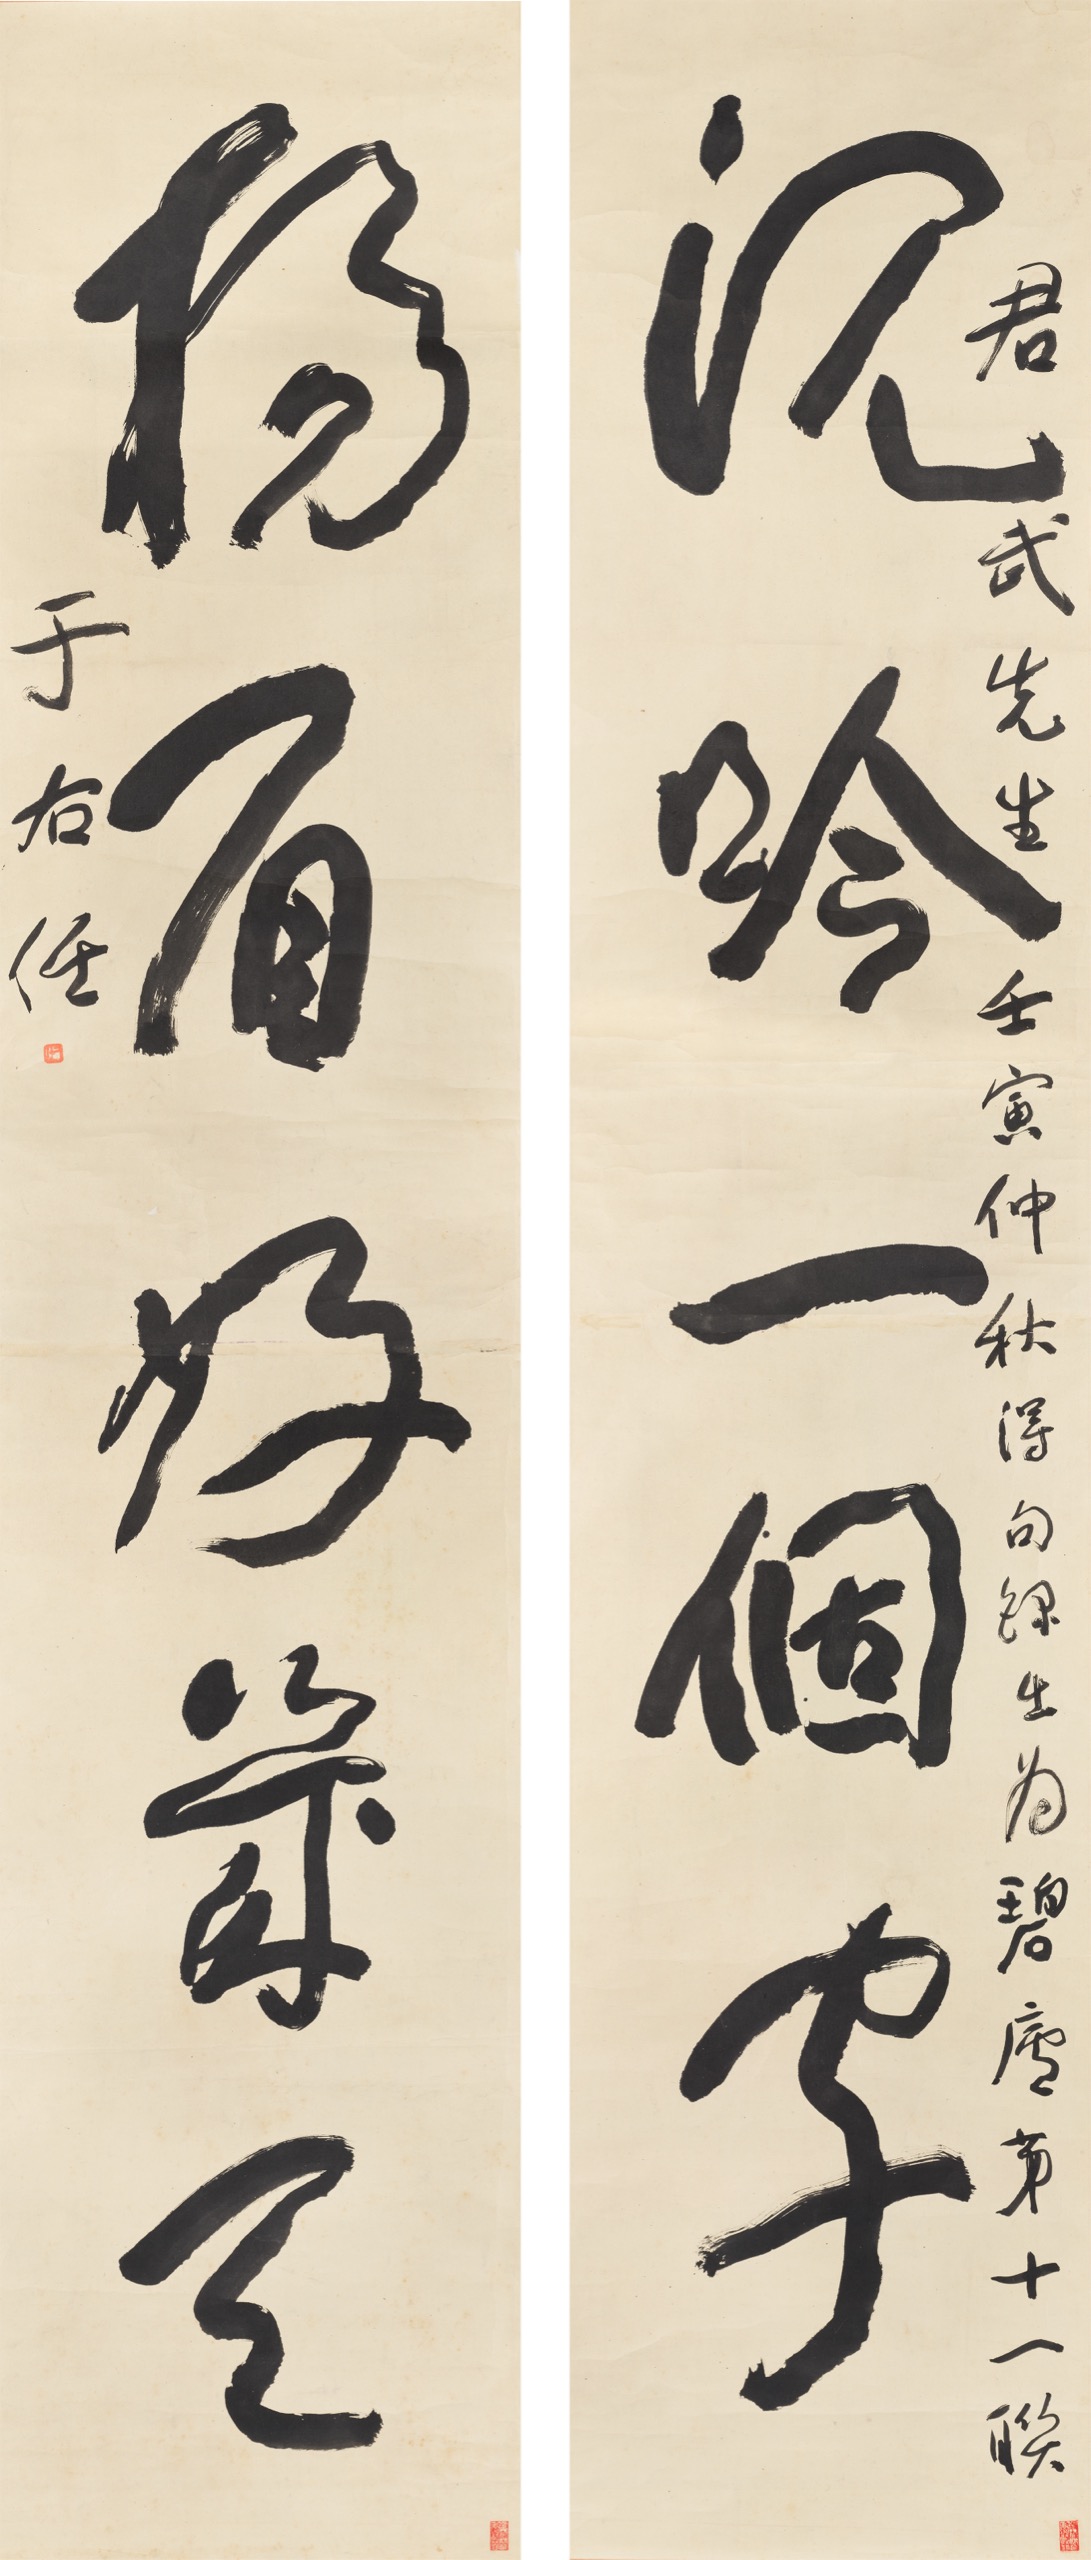 沈吟一個字
君武先生 壬寅仲秋得句錄出為碧廬第十一聯
揚眉好幾天
于右任